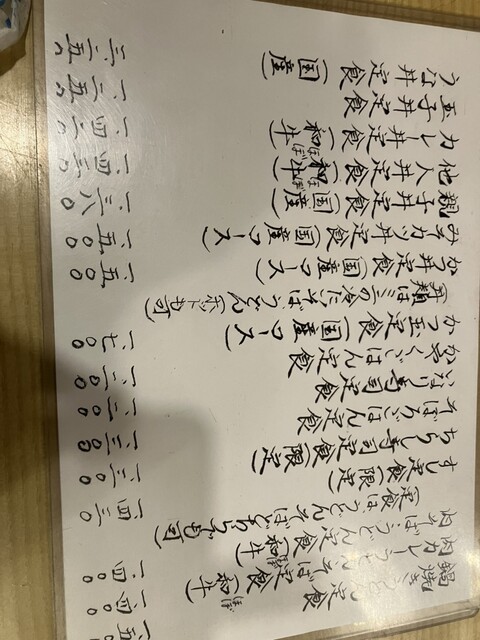 鍋焼きうどん定食 一、五
肉カレーうどんそば定食(和牛) ほぼ 一、四〇〇
肉そば・うどん定食(和牛) 一、四〇〇
(定食はうどんそばどちらでも可)
すし定食(限定) 一、四三〇
ちらし寿司定食(限定) 一、三〇〇
そぼろごはん定食 一、三〇〇
いなり寿司定食 一、二〇〇
かやくごはん定食 一、二〇〇
かつ玉定食(国産ロース) 一、七〇〇
丼類はミニの冷たいそばうどん(ホットも可)
かつ丼定食(国産ロース) 一、五〇〇
みそカツ丼定食(国産ロース) 一、五〇〇
親子丼定食(国産) 一、三八〇
他人丼定食(和牛) ほぼ 一、四三〇
カレー丼定食(和牛) ほぼ 一、四二〇
玉子丼定食 一、二五〇
うな丼定食(国産) 二、二五〇